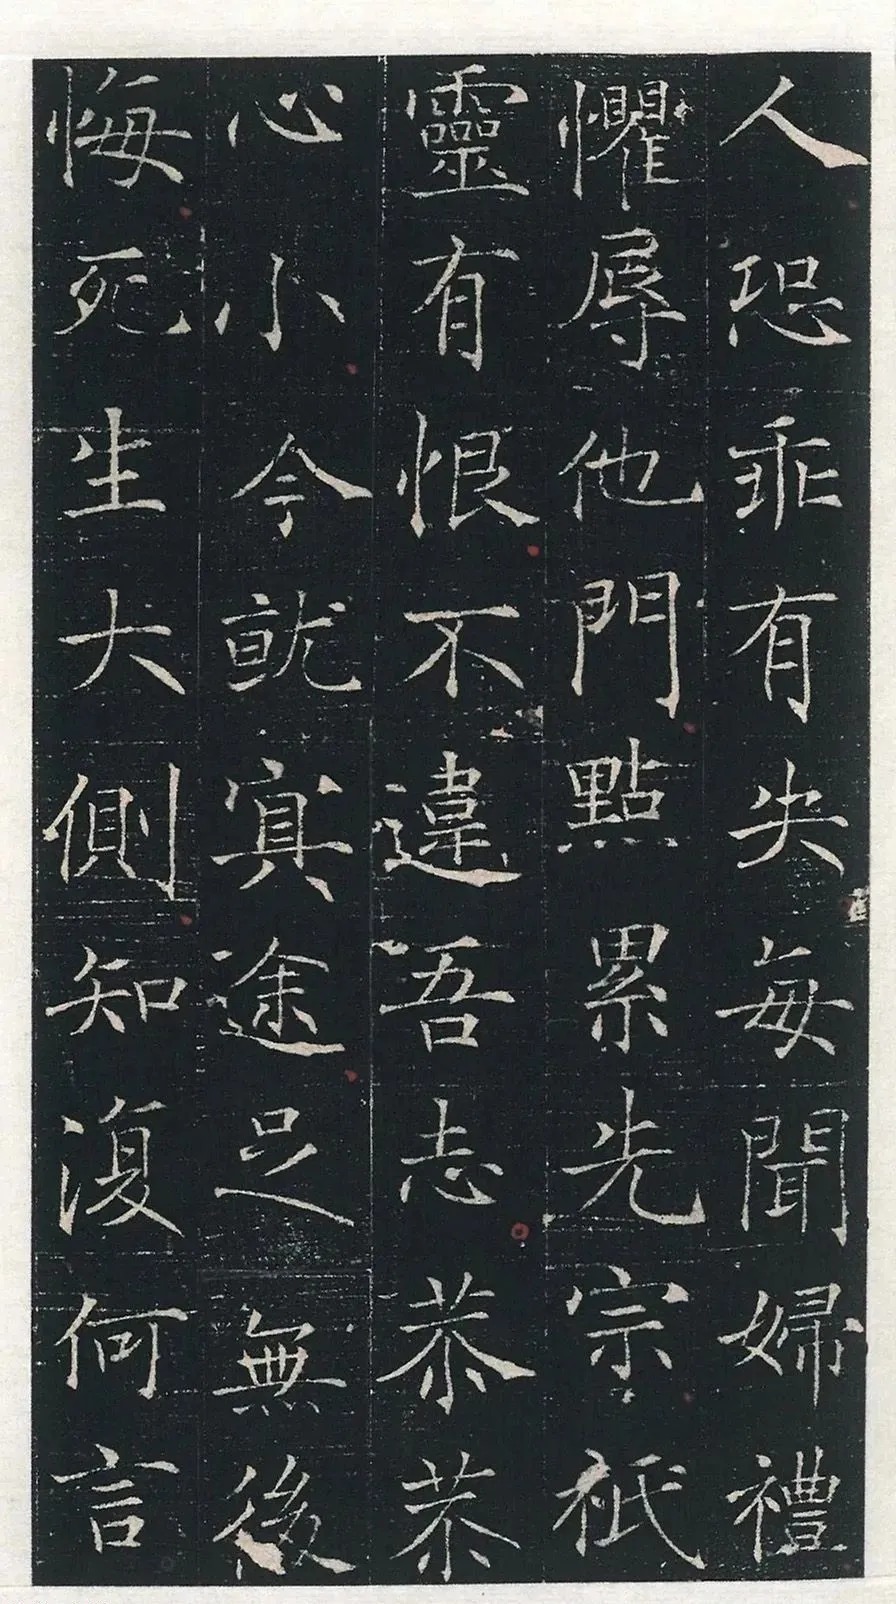 人恐乖有失每聞婦禮
懼辱他門點累先宗祇
靈有恨不違吾志恭恭
心小今就冥途足無後
悔死生大側知復何言